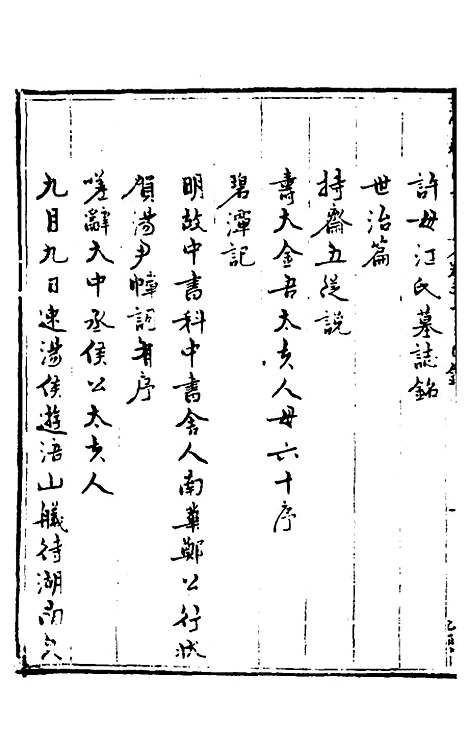 許母汪氏墓誌銘
世治篇
持齋五從説
壽大金吾太夫人母六十序
碧潭記
明故中書科中書舍人南華鄭公行状
賀湯尹幛詞有序
嗟辭大中丞侯公太夫人
九月九日速湯侯遊浯山艤待湖南